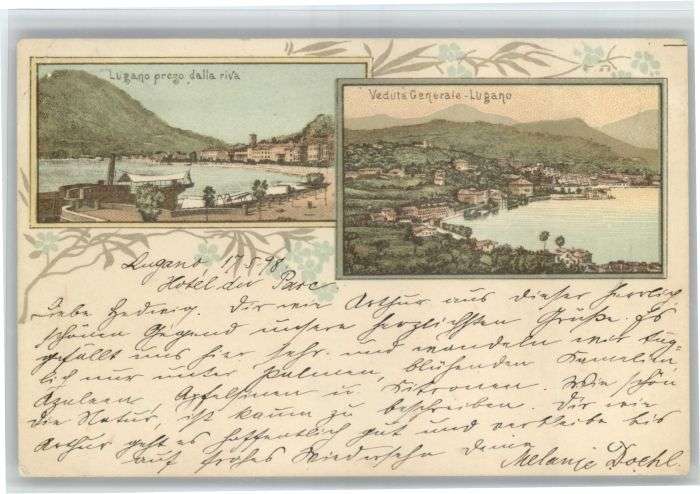 Lugano prezo dalla riva
Veduta Generale - Lugano
Lugano 17.5.98
Hôtel du Parc
Liebe Hedwig. Dir wie Arthur aus dieser herrlich
schönen Gegend unsere herzlichsten Grüße. Es
gefällt uns hier sehr und wandeln wir täg-
lich nur unter Palmen, blühenden Kamelien
Azaleen, Apfelsinen u. Citronen. Wie schön
die Natur, ist kaum zu beschreiben. Dir wie
Arthur geht es hoffentlich gut und verbleibe bis
auf frohes Wiedersehn deine
Melanie Doehl.